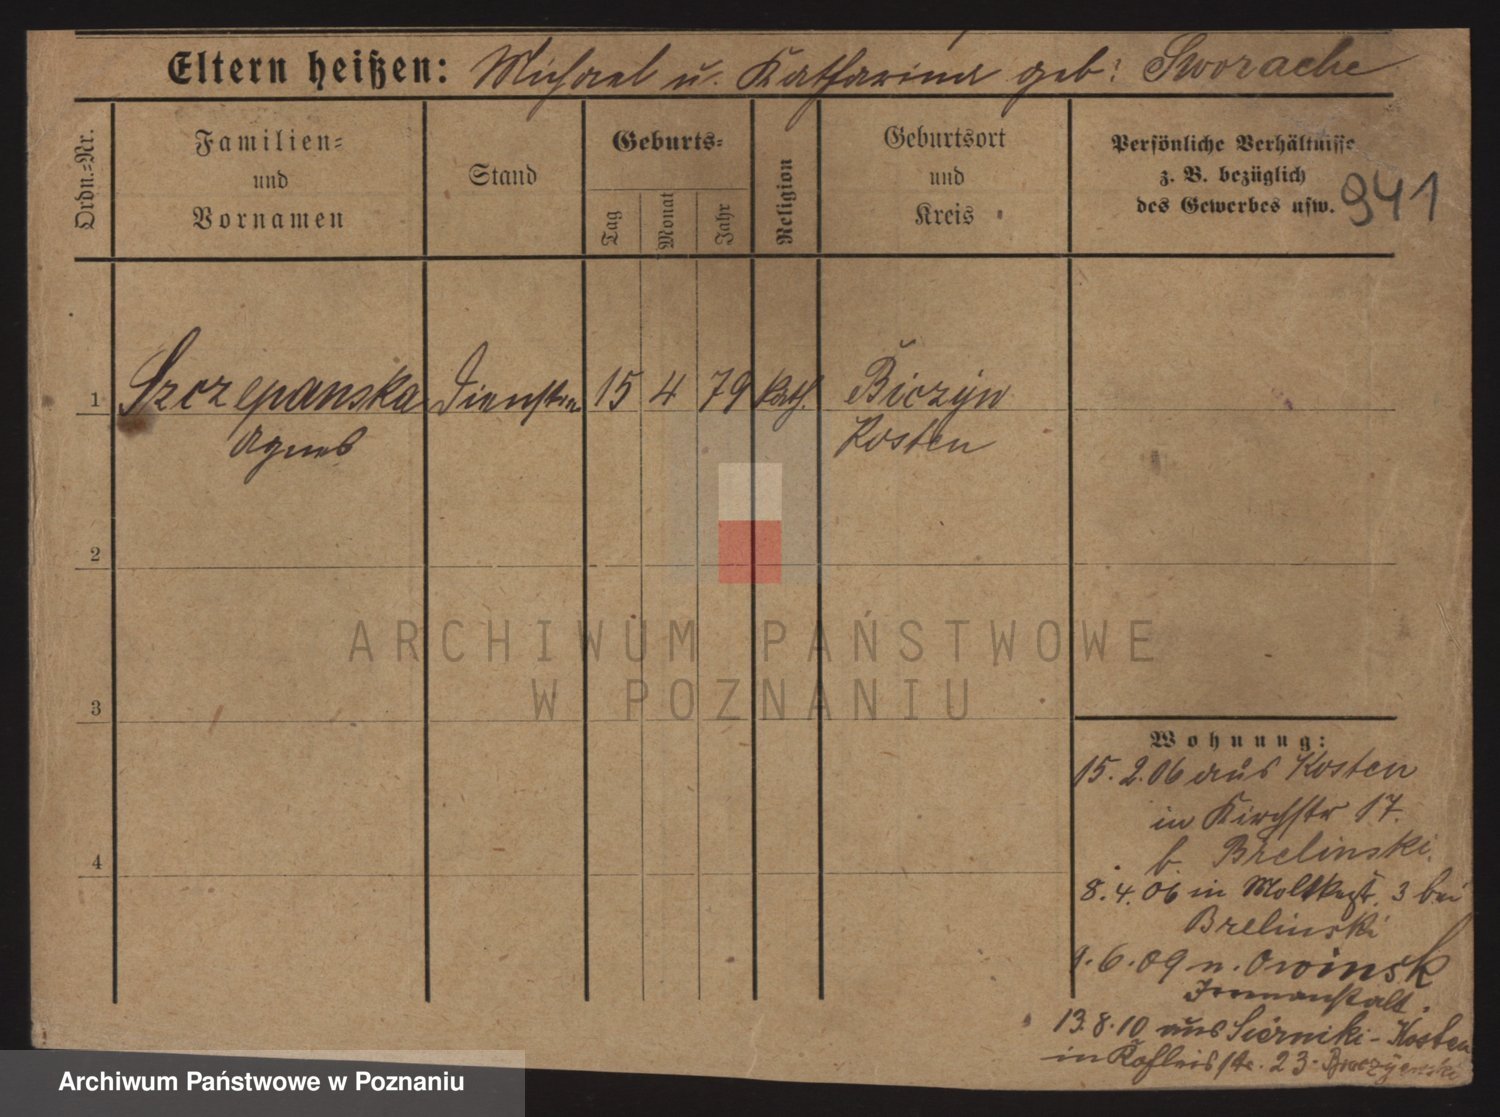 Eltern heißen: Michael u. Katharina geb: Sworacke
Ordn.=Nr.
Familien=
und
Vornamen
Stand
Geburts=
Tag
Monat
Jahr
Religion
Geburtsort
und
Kreis
Persönliche Verhältnisse
z. B. bezüglich
des Gewerbes usw.
941
1 Szczepanska 15 4 79 kath. Biczyn
Agnes Kosten
2
3
4
Wohnung:
15.2.06 aus Kosten
in Kirchstr 17.
b. Brelinski.
8.4.06 in Moltkestr. 3 bei
Brelinski
9.6.09 n. Owinsk
Irrenanstalt.
13.8.10 aus Sierniki - Kosten
in 23
ARCHIWUM PAŃSTWOWE
W POZNANIU
Archiwum Państwowe w Poznaniu